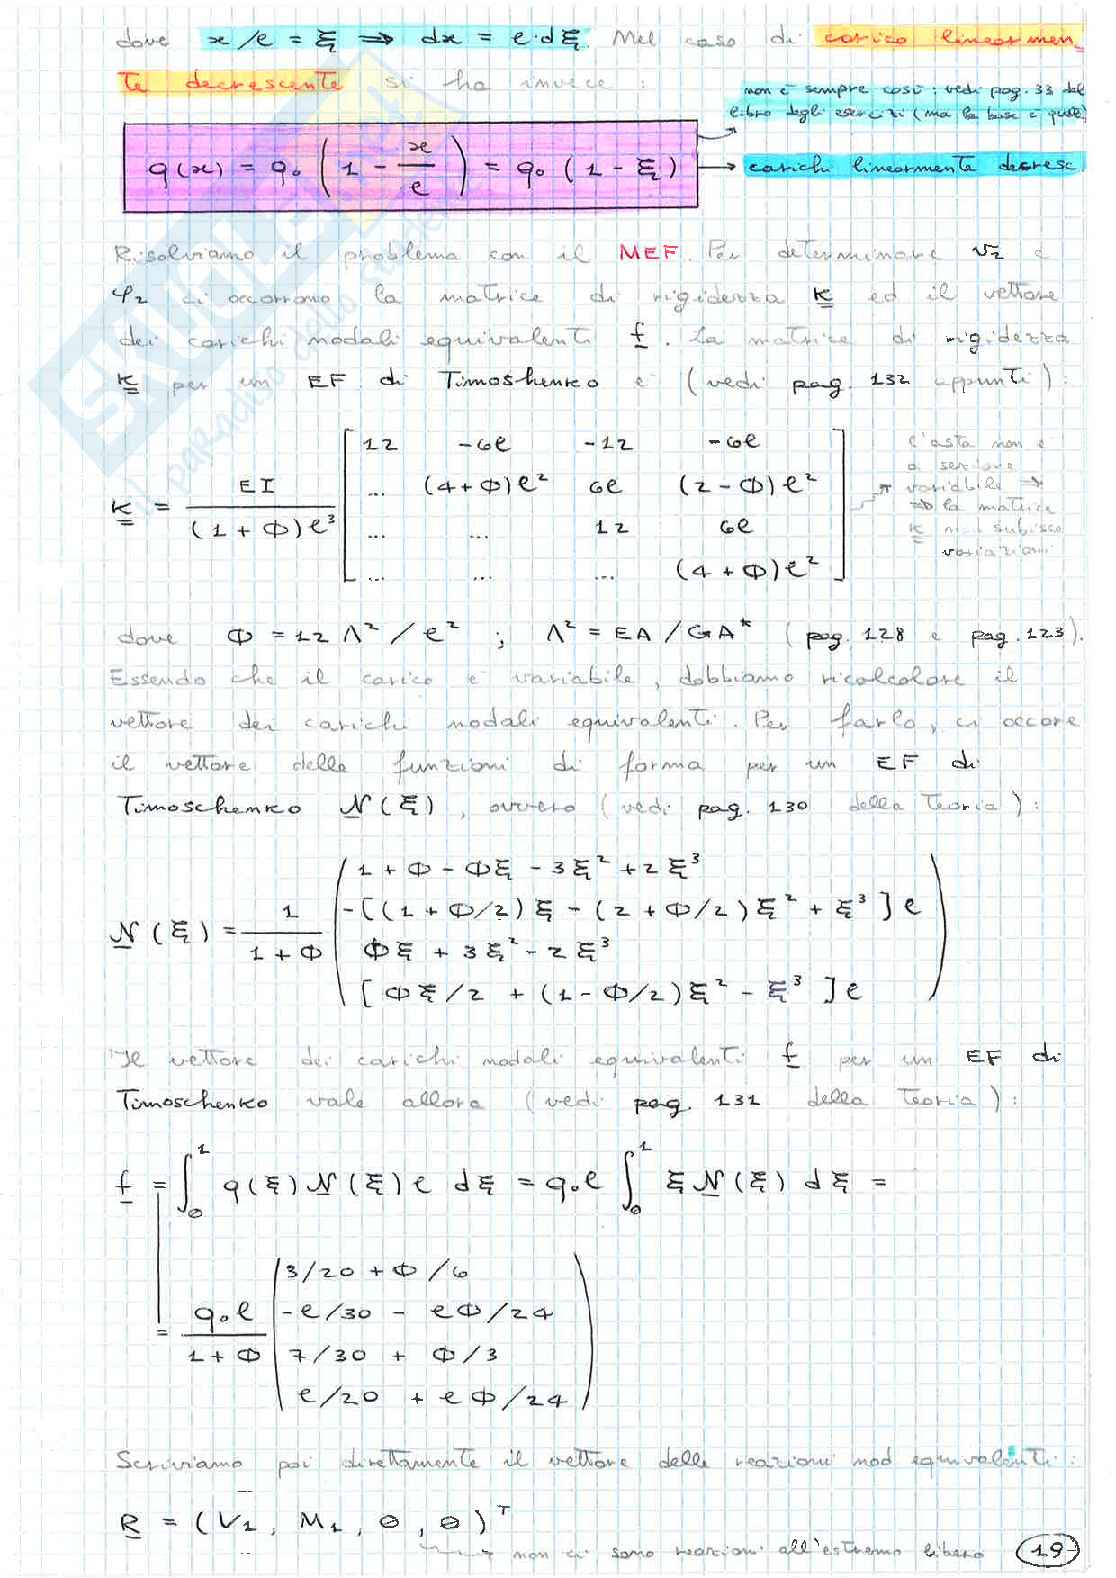 dove x/l = ξ ⟹ dx = l·dξ. Nel caso di carico linearmen_
te decrescente si ha invece :
non è sempre così : vedi pag. 33 del
libro degli esercizi (ma la base è quella)
q(x) = q₀ (1 - x/l) = q₀ (1 - ξ)
carichi linearmente decresc.
Risolviamo il problema con il MEF. Per determinare v₂ e
φ₂ ci occorrono la matrice di rigidezza k ed il vettore
dei carichi nodali equivalenti f. La matrice di rigidezza
k per un EF di Timoshenko è (vedi pag. 132 appunti) :
k = EI / (1 + Φ)l³
12 -6l -12 -6l
... (4+Φ)l² 6l (2-Φ)l²
... ... 12 6l
... ... ... (4+Φ)l²
l'asta non è
di sezione
variabile →
⟹ la matrice
k non subisce
variazioni
dove Φ = 12 Λ²/l² ; Λ² = EA/GA* (pag. 128 e pag. 123).
Essendo che il carico è variabile, dobbiamo ricalcolare il
vettore dei carichi nodali equivalenti. Per farlo, ci occore
il vettore delle funzioni di forma per un EF di
Timoschenko N(ξ), ovvero (vedi pag. 130 della Teoria) :
N(ξ) = 1 / (1+Φ)
1 + Φ - Φξ - 3ξ² + 2ξ³
-[(1+Φ/2)ξ - (2+Φ/2)ξ² + ξ³]l
Φξ + 3ξ² - 2ξ³
[Φξ/2 + (1-Φ/2)ξ² - ξ³]l
Il vettore dei carichi nodali equivalenti f per un EF di
Timoschenko vale allora (vedi pag. 131 della Teoria) :
f = ∫₀¹ q(ξ) N(ξ) l dξ = q₀l ∫₀¹ ξ N(ξ) dξ =
= q₀l / (1+Φ)
3/20 + Φ/6
-l/30 - lΦ/24
7/20 + Φ/3
l/20 + lΦ/24
Scriviamo poi direttamente il vettore delle reazioni nod equivalenti :
R = (V₁, M₁, 0, 0)ᵀ
non ci sono reazioni all'estremo libero
19